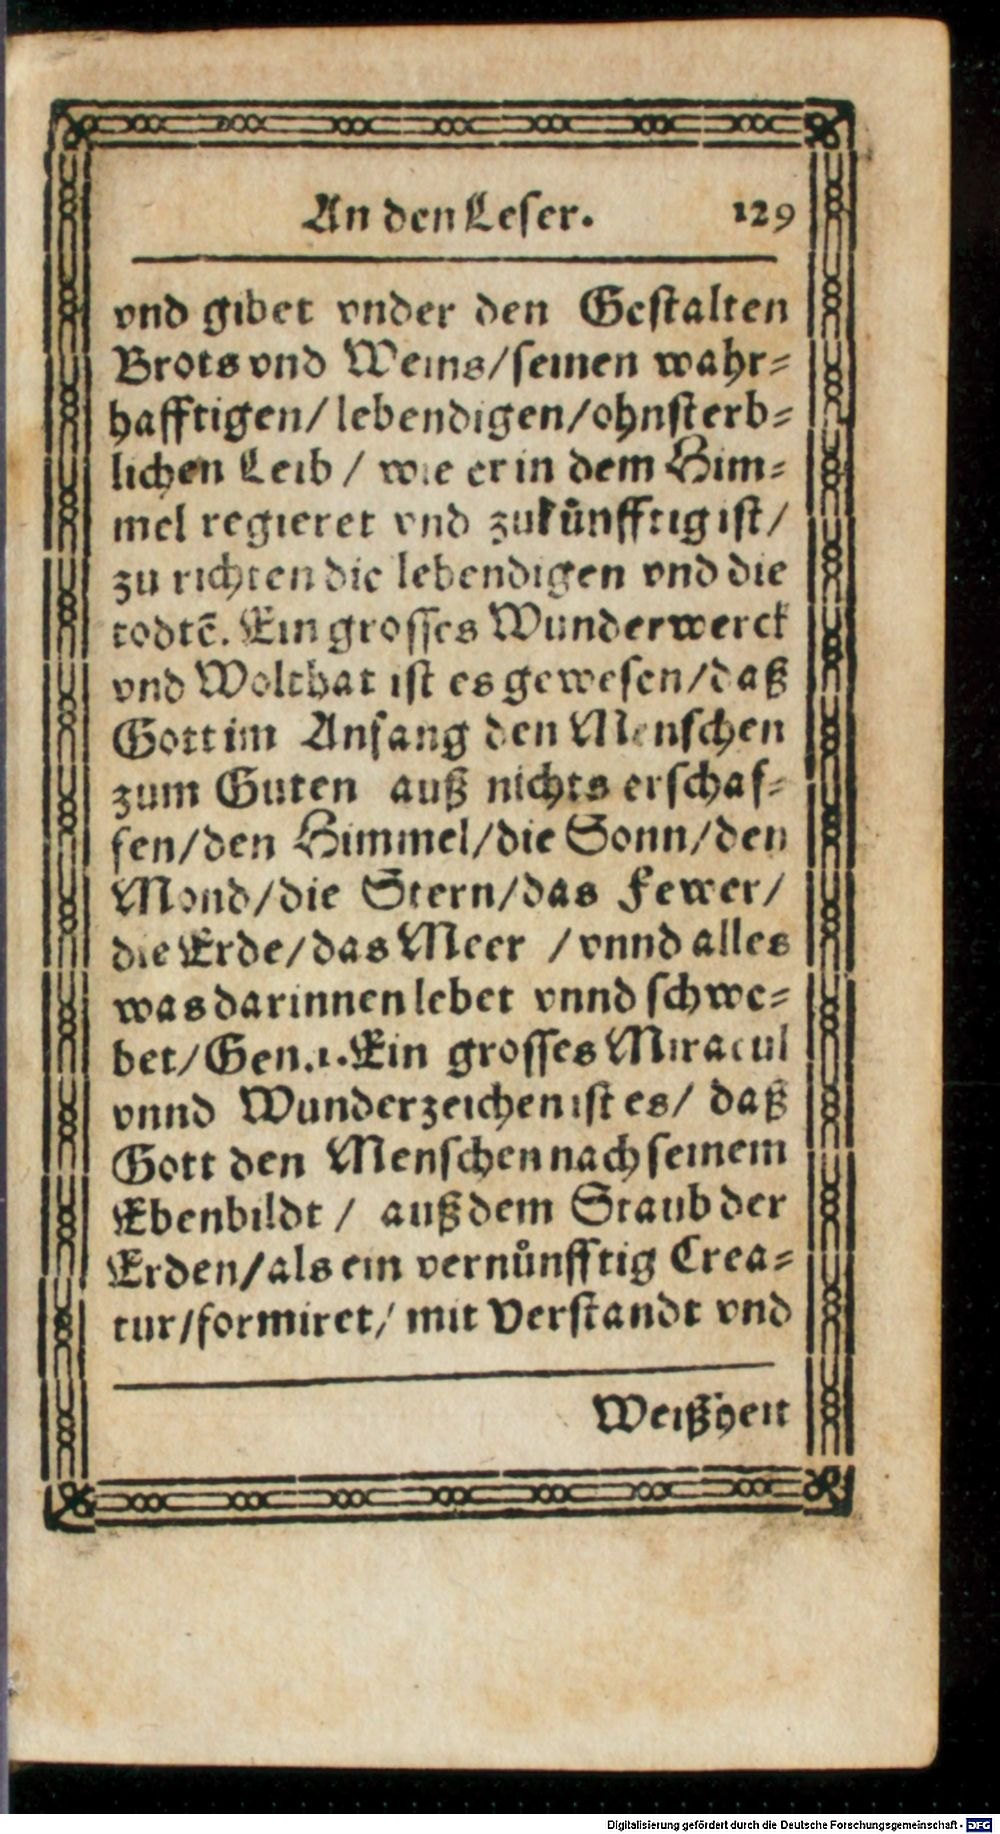 An den Leser. 129
vnd gibet vnder den Gestalten
Brots vnd Weins/seinen wahr=
hafftigen/lebendigen/ohnsterb=
lichen Leib / wie er in dem Him=
mel regieret vnd zukůnfftig ist/
zu richten die lebendigen vnd die
todtē. Ein grosses Wunderwerck
vnd Wolthat ist es gewesen/daß
Gott im Anfang den Menschen
zum Guten auß nichts erschaf=
fen/den Himmel/die Sonn/den
Mond/die Stern/das Fewer/
die Erde/das Meer /vnnd alles
was darinnen lebet vnnd schwe=
bet/Gen.1.Ein grosses Miracul
vnnd Wunderzeichen ist es/ daß
Gott den Menschen nach seinem
Ebenbildt / auß dem Staub der
Erden/als ein vernůnfftig Crea=
tur/formiret/ mit Verstandt vnd
Weißheit
Digitalisierung gefördert durch die Deutsche Forschungsgemeinschaft - DFG